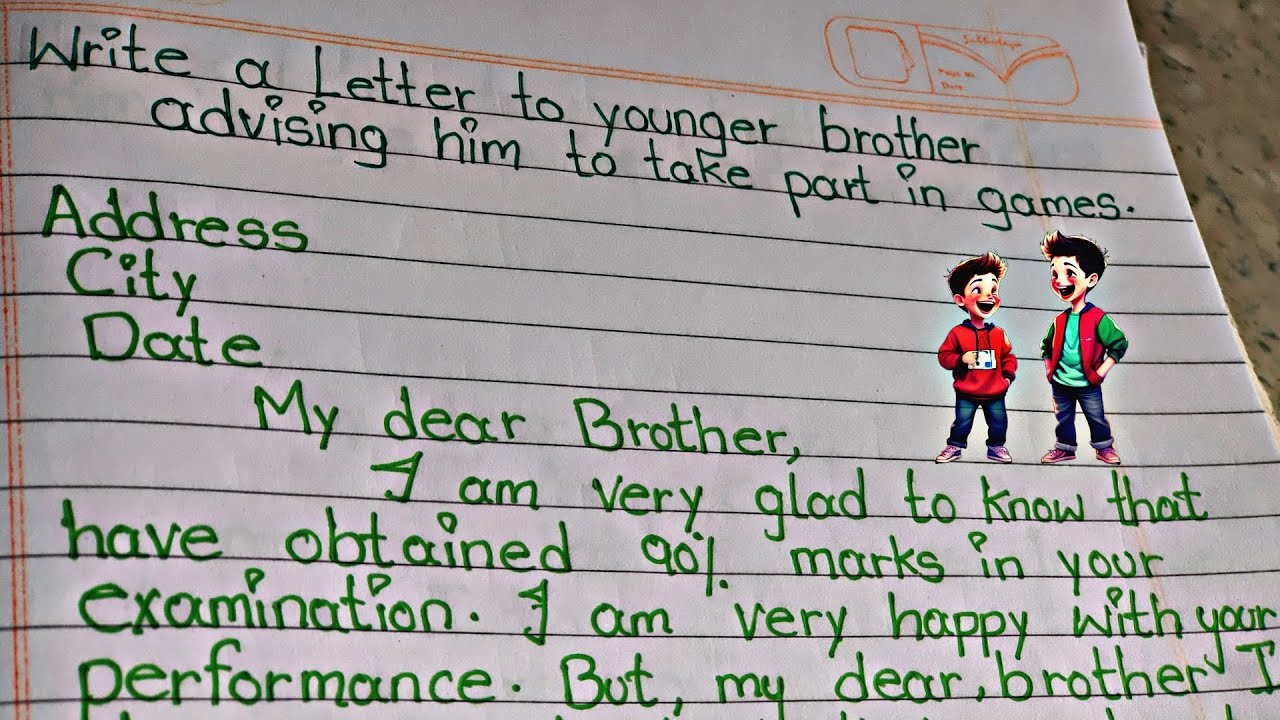 Write a Letter to younger brother
advising him to take part in games.
Address
City
Date
My dear Brother,
I am very glad to know that
have obtained 90% marks in your
examination. I am very happy with your
performance. But, my dear, brother I